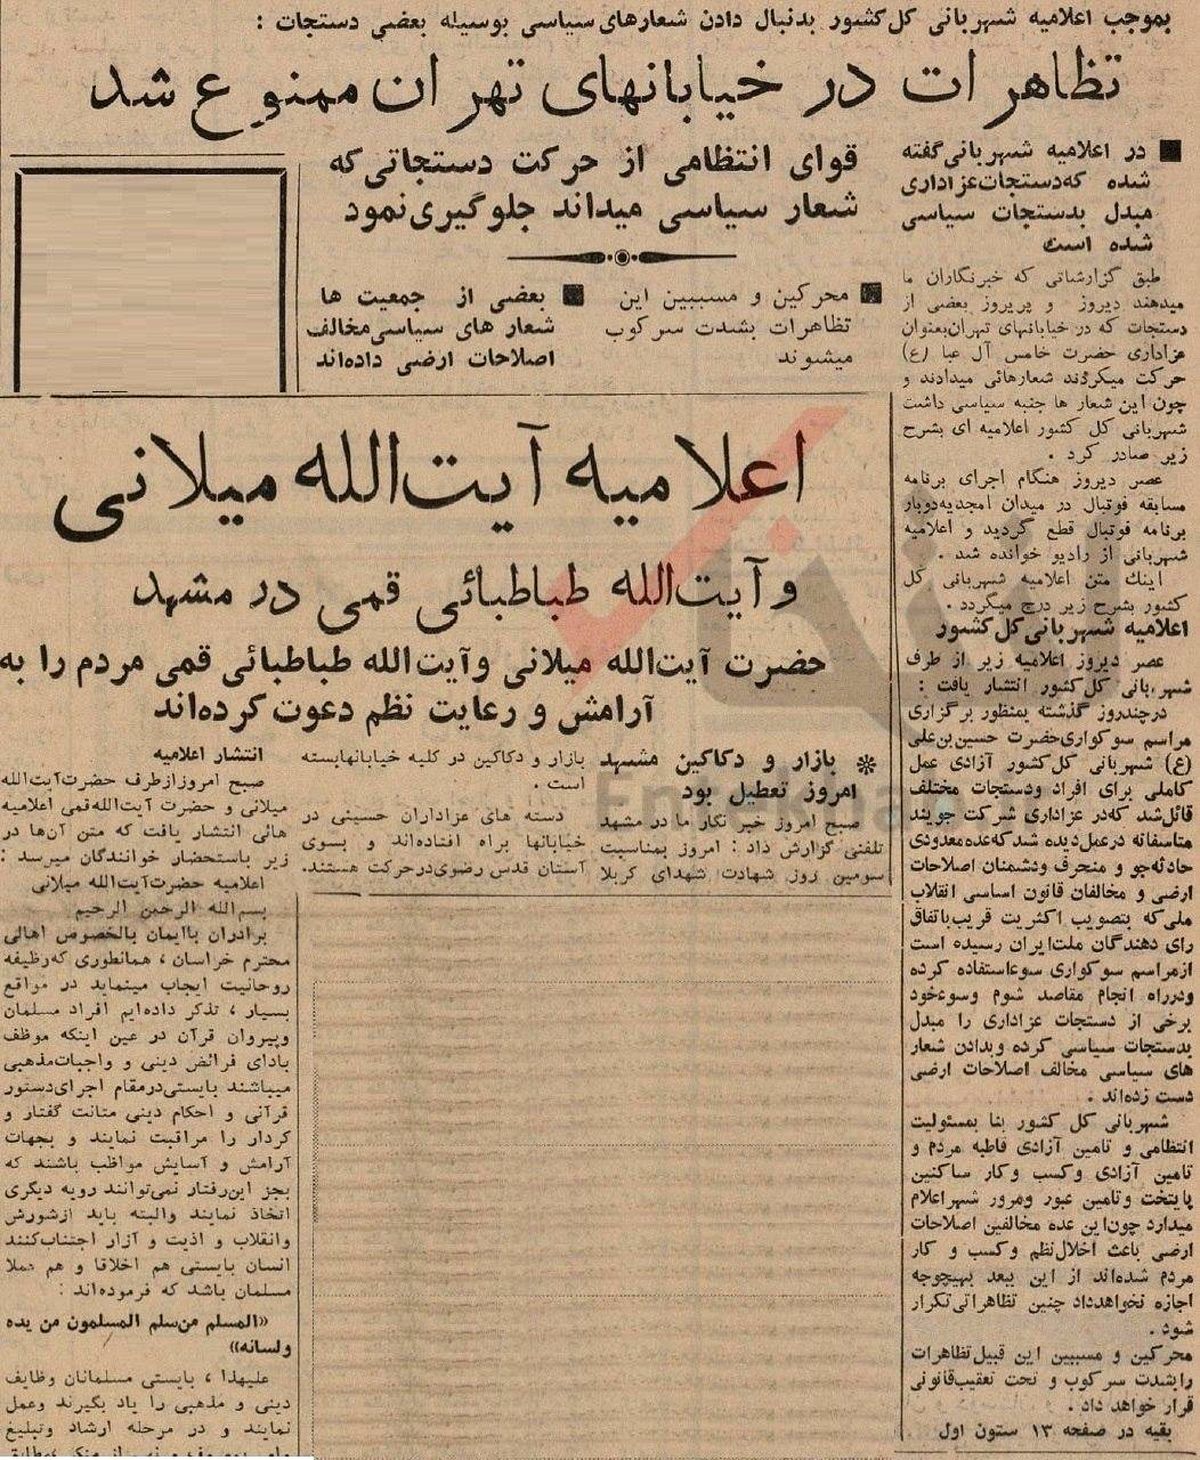 بموجب اعلامیه شهربانی کل کشور بدنبال دادن شعارهای سیاسی بوسیله بعضی دستجات :
تظاهرات در خیابانهای تهران ممنوع شد
■ در اعلامیه شهربانی گفته
شده که دستجات عزاداری
مبدل بدستجات سیاسی
شده است
قوای انتظامی از حرکت دستجاتی که
شعار سیاسی میداند جلوگیری نمود
■ محرکین و مسببین این
تظاهرات بشدت سرکوب
میشوند
■ بعضی از جمعیت ها
شعار های سیاسی مخالف
اصلاحات ارضی داده‌اند
طبق گزارشاتی که خبرنگاران ما
میدهند دیروز و پریروز بعضی از
دستجات که در خیابانهای تهران بعنوان
عزاداری حضرت خامس آل عبا (ع)
حرکت میکردند شعارهائی میدادند و
چون این شعار ها جنبه سیاسی داشت
شهربانی کل کشور اعلامیه ای بشرح
زیر صادر کرد .
عصر دیروز هنگام اجرای برنامه
مسابقه فوتبال در میدان امجدیه دوبار
برنامه فوتبال قطع گردید و اعلامیه
شهربانی از رادیو خوانده شد .
اینك متن اعلامیه شهربانی کل
کشور بشرح زیر درج میگردد .
اعلامیه شهربانی کل کشور
عصر دیروز اعلامیه زیر از طرف
شهربانی کل کشور انتشار یافت :
درچندروز گذشته بمنظور برگزاری
مراسم سوگواری حضرت حسین بن علی
(ع) شهربانی کل کشور آزادی عمل
کاملی برای افراد ودستجات مختلف
قائل شد که در عزاداری شرکت جویند
متاسفانه درعمل دیده شد که عده معدودی
حادثه جو و منحرف ودشمنان اصلاحات
ارضی و مخالفان قانون اساسی انقلاب
ملی که بتصویب اکثریت قریب باتفاق
رای دهندگان ملت ایران رسیده است
ازمراسم سوگواری سوءاستفاده کرده
ودرراه انجام مقاصد شوم وسوءخود
برخی از دستجات عزاداری را مبدل
بدستجات سیاسی کرده وبدادن شعار
های سیاسی مخالف اصلاحات ارضی
دست زده‌اند .
شهربانی کل کشور بنا بمسئولیت
انتظامی و تامین آزادی قاطبه مردم و
تامین آزادی وکسب وکار ساکنین
پایتخت وتامین عبور ومرور شهر اعلام
میدارد چون این عده مخالفین اصلاحات
ارضی باعث اخلال نظم وکسب و کار
مردم شده‌اند از این ببعد بهیچوجه
اجازه نخواهدداد چنین تظاهراتی تکرار
شود .
محرکین و مسببین این قبیل تظاهرات
را بشدت سرکوب و تحت تعقیب قانونی
قرار خواهد داد .
بقیه در صفحه ۱۳ ستون اول
اعلامیه آیت‌الله میلانی
و آیت‌الله طباطبائی قمی در مشهد
حضرت آیت‌الله میلانی و آیت‌الله طباطبائی قمی مردم را به
آرامش و رعایت نظم دعوت کرده‌اند
بازار و دکاکین مشهد
امروز تعطیل بود
صبح امروز خبر نگار ما در مشهد
تلفنی گزارش داد : امروز بمناسبت
سومین روز شهادت شهدای کربلا
بازار و دکاکین در کلیه خیابانهابسته
است .
دسته های عزاداران حسینی در
خیابانها براه افتاده‌اند و بسوی
آستان قدس رضوی درحرکت هستند.
انتشار اعلامیه
صبح امروزازطرف حضرت آیت‌الله
میلانی و حضرت آیت‌الله قمی اعلامیه
هائی انتشار یافت که متن آن‌ها در
زیر باستحضار خوانندگان میرسد :
اعلامیه حضرت آیت‌الله میلانی
بسم‌الله الرحمن الرحیم
برادران باایمان بالخصوص اهالی
محترم خراسان ، همانطوری که وظیفه
روحانیت ایجاب مینماید در مواقع
بسیار ، تذکر داده‌ایم افراد مسلمان
وپیروان قرآن در عین اینکه موظف
بادای فرائض دینی و واجبات مذهبی
میباشند بایستی درمقام اجرای دستور
قرآنی و احکام دینی متانت گفتار و
کردار را مراقبت نمایند و بجهات
آرامش و آسایش مواظب باشند که
بجز این رفتار نمی‌توانند رویه دیگری
اتخاذ نمایند والبته باید ازشورش
وانقلاب و اذیت و آزار اجتناب کنند
انسان بایستی هم اخلاقا و هم عملا
مسلمان باشد که فرموده‌اند :
«المسلم من سلم المسلمون من یده
ولسانه»
علیهذا ، بایستی مسلمانان وظایف
دینی و مذهبی را یاد بگیرند وعمل
نمایند و در مرحله ارشاد وتبلیغ